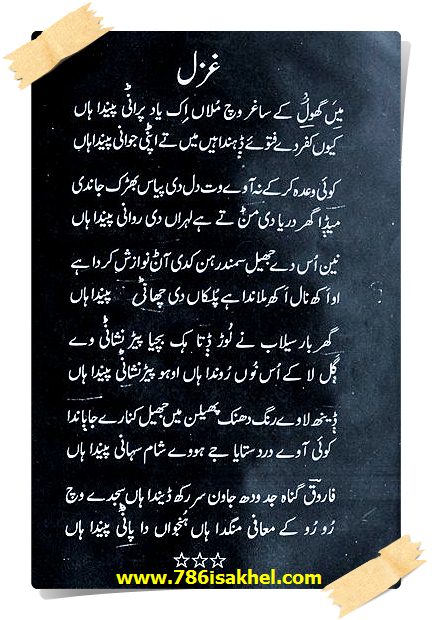 غزل
میں گھول کے ساغر وچ مُلاں اِک یاد پرانڑیں پیندا ہاں
کیوں کفر دے فتوے ڈیہندا ہیں میں تے اپنڑیں جوانی پیندا ہاں
کوئی وعدہ کر کے نہ آوے وت دل دی پیاس بھڑک جاندی
میڈا گھر دریا دی منْ تے ہے لہراں دی روانی پیندا ہاں
نین اُس دے جھیل سمندر ہن کدی آنْ نوازش کردا ہے
او اَکھ نال اَکھ ملاندا ہے پلکاں دی چھانی پیندا ہاں
گھر بار سیلاب نے لُوڑ ڈتا ہک بچیا پیڑ نشانی وے
گل لا کے اُس نُوں روندا ہاں اوہو پیڑ نشانی پیندا ہاں
ڈینھ لاوے رنگ دھنک پھیلن میں جھیل کنارے جا باندا
کوئی آوے درد ستایا جے ہووے شام سہانی پیندا ہاں
فاروقؔ گناہ جد ودھ جاون سر رکھ ڈیندا ہاں سجدے وچ
رُو رُو کے معافی منگدا ہاں ہنجواں دا پانی پیندا ہاں
☆☆☆
www.786isakhel.com